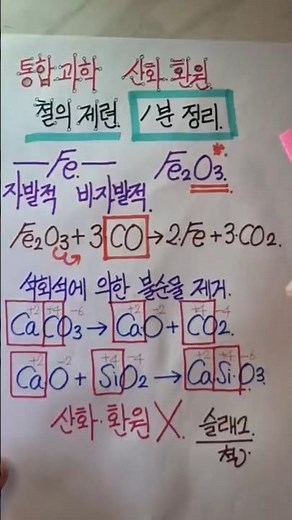 통합과학 산화 환원
철의 제련 1분 정리.
Fe Fe₂O₃ *
자발적 비자발적
Fe₂O₃ + 3CO → 2Fe + 3CO₂.
석회석에 의한 불순물 제거.
+2 +4 -6 +2 -2 +4 -4
CaCO₃ → CaO + CO₂.
+2 -2 +4 -4 +2 +4 -6
CaO + SiO₂ → CaSiO₃
산화·환원 X. 슬래그